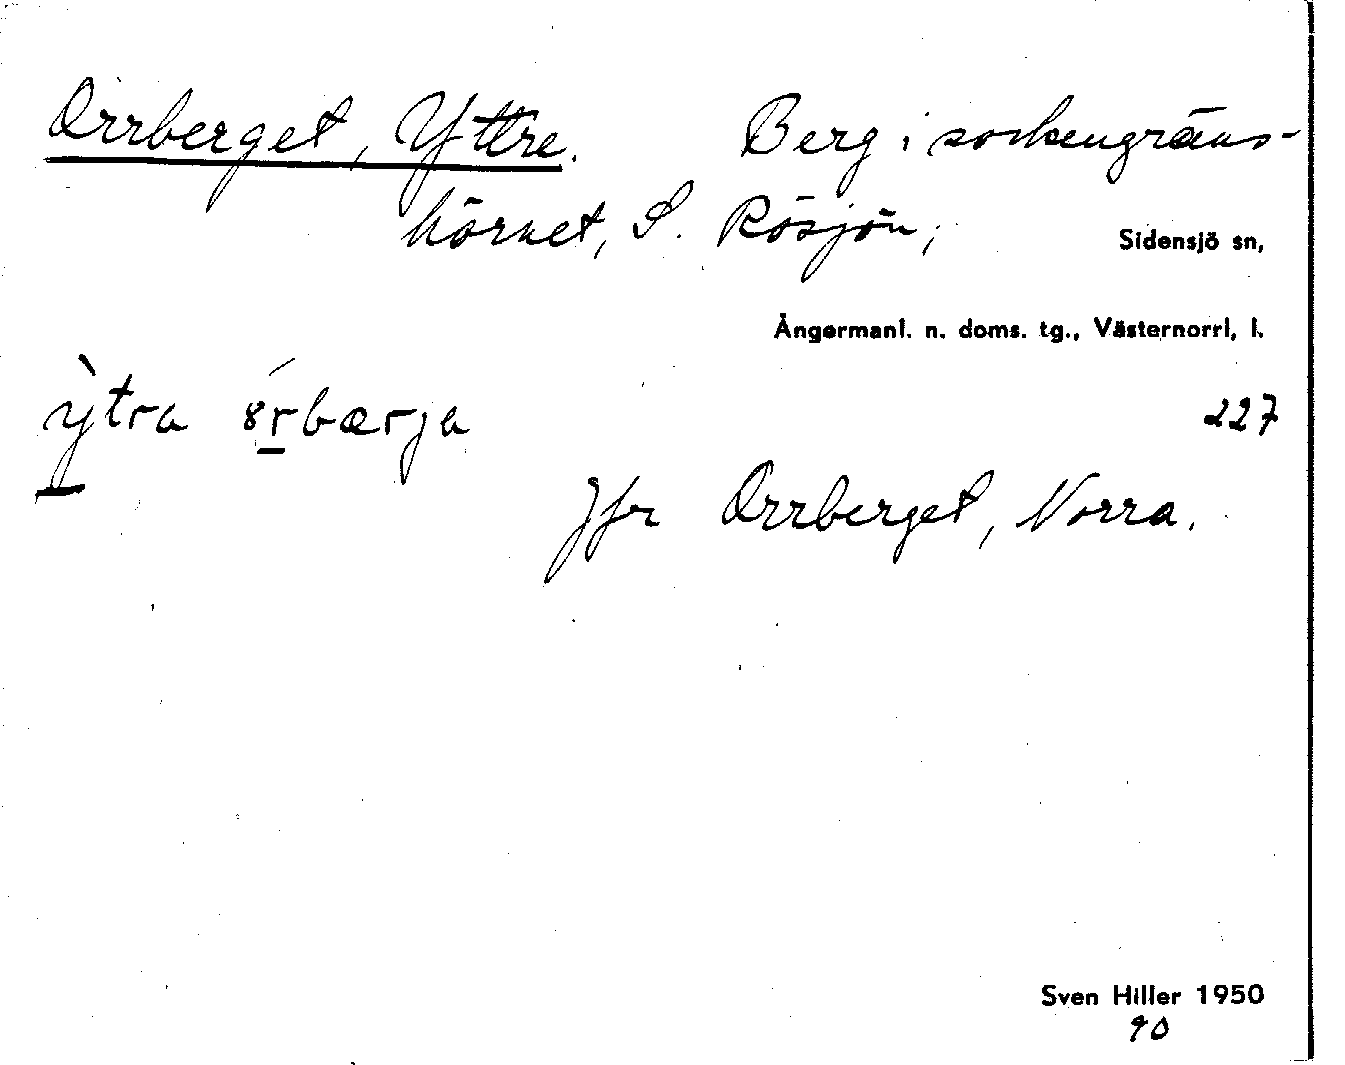 Orrberget, Yttre. Berg i sockengräns-
hörnet, S. Rösjön; Sidensjö sn,
Ångermanl. n. doms. tg., Västernorrl, l.
ỳtra 8́rbærja 227
Jfr Orrberget, Norra.
Sven Hiller 1950
90